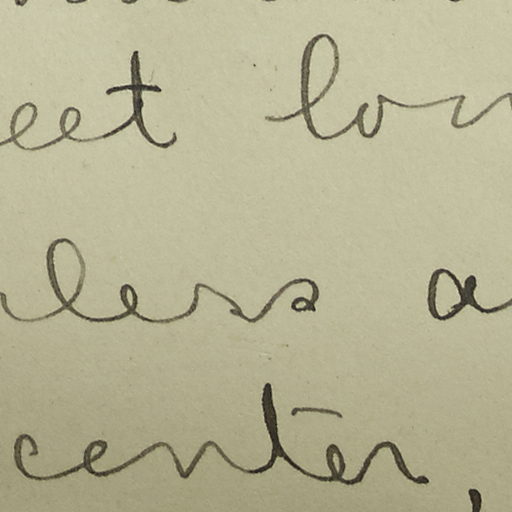 eet lon
less a
center,